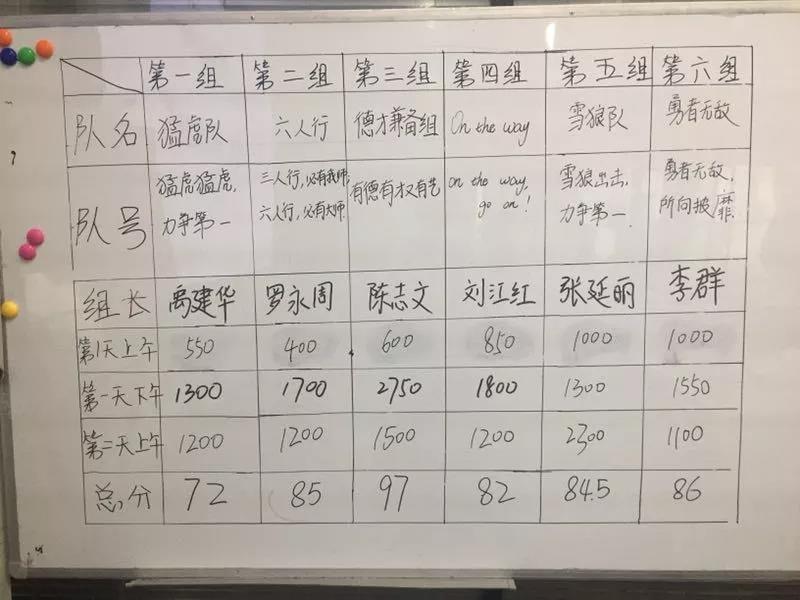 第一组 第二组 第三组 第四组 第五组 第六组
队名 猛虎队 六人行 德才兼备组 On the way 雪狼队 勇者无敌
队号 猛虎猛虎, 三人行,必有我师; 有德有才又有艺 on the way, 雪狼出击, 勇者无敌,
力争第一 六人行,必有大师 go on! 力争第一. 所向披靡.
组长 禹建华 罗永周 陈志文 刘江红 张延丽 李群
第1天上午 550 400 600 850 1000 1000
第一天下午 1300 1700 2750 1800 1300 1550
第二天上午 1200 1200 1500 1200 2300 1100
总分 72 85 97 82 84.5 86